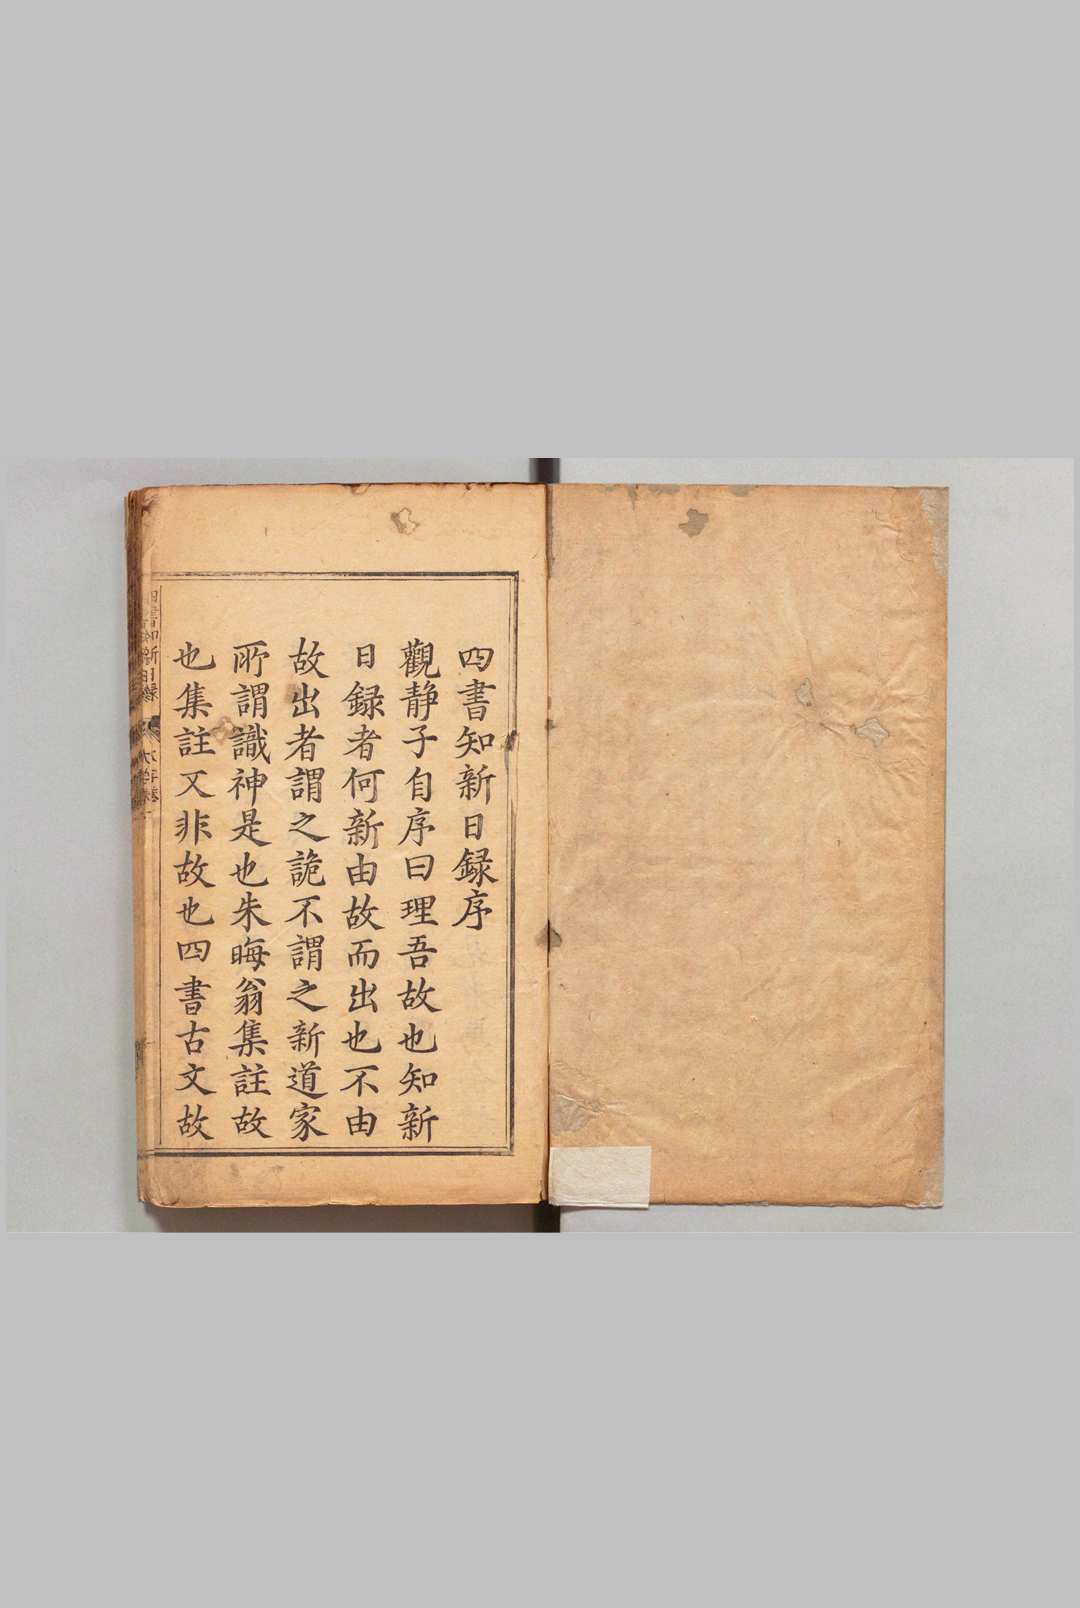 四書知新日録序
觀静子自序曰理吾故也知新
日録者何新由故而出也不由
故出者謂之詭不謂之新道家
所謂識神是也朱晦翁集註故
也集註又非故也四書古文故
四書知新日録